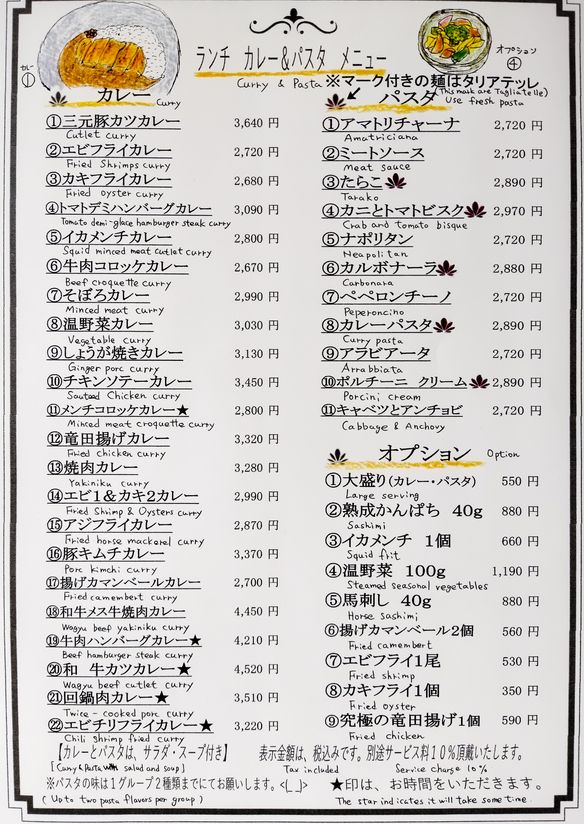 ランチ カレー&パスタ メニュー
Curry & Pasta
カレー
①
オプション
④
※マーク付きの麺はタリアテッレ
(This mark are Tagliatelle)
Use fresh pasta
カレー Curry
①三元豚カツカレー 3,640 円
Cutlet curry
②エビフライカレー 2,720 円
Fried Shrimps curry
③カキフライカレー 2,680 円
Fried oyster curry
④トマトデミハンバーグカレー 3,090 円
Tomato demi-glace hamburger steak curry
⑤イカメンチカレー 2,800 円
Squid minced meat cutlet curry
⑥牛肉コロッケカレー 2,670 円
Beef croquette curry
⑦そぼろカレー 2,990 円
Minced meat curry
⑧温野菜カレー 3,030 円
Vegetable curry
⑨しょうが焼きカレー 3,130 円
Ginger porc curry
⑩チキンソテーカレー 3,450 円
Sauteed Chicken curry
⑪メンチコロッケカレー★ 2,800 円
Minced meat croquette curry
⑫竜田揚げカレー 3,320 円
Fried chicken curry
⑬焼肉カレー 3,280 円
Yakiniku curry
⑭エビ1&カキ2カレー 2,990 円
Fried Shrimp & Oysters curry
⑮アジフライカレー 2,870 円
Fried horse mackerel curry
⑯豚キムチカレー 3,370 円
Porc kimchi curry
⑰揚げカマンベールカレー 2,700 円
Fried camembert curry
⑱和牛メス牛焼肉カレー 4,450 円
Wagyu beef yakiniku curry
⑲牛肉ハンバーグカレー★ 4,210 円
Beef hamburger steak curry
⑳和 牛カツカレー★ 4,520 円
Wagyu beef cutlet curry
㉑回鍋肉カレー★ 3,510 円
Twice-cooked porc curry
㉒エビチリフライカレー★ 3,220 円
Chili shrimp fried curry
パスタ
①アマトリチャーナ 2,720 円
Amatriciana
②ミートソース 2,720 円
Meat sauce
③たらこ 2,890 円
Tarako
④カニとトマトビスク 2,970 円
Crab and tomato bisque
⑤ナポリタン 2,720 円
Neapolitan
⑥カルボナーラ 2,880 円
Carbonara
⑦ペペロンチーノ 2,720 円
Peperoncino
⑧カレーパスタ 2,890 円
Curry pasta
⑨アラビアータ 2,720 円
Arrabbiata
⑩ポルチーニ クリーム 2,890 円
Porcini cream
⑪キャベツとアンチョビ 2,720 円
Cabbage & Anchovy
オプション Option
①大盛り(カレー・パスタ) 550 円
Large serving
②熟成かんぱち 40g 880 円
Sashimi
③イカメンチ 1個 660 円
Squid frit
④温野菜 100g 1,190 円
Steamed seasonal vegetables
⑤馬刺し 40g 880 円
Horse sashimi
⑥揚げカマンベール2個 560 円
Fried camembert
⑦エビフライ1尾 530 円
Fried shrimp
⑧カキフライ1個 350 円
Fried oyster
⑨究極の竜田揚げ1個 590 円
Fried chicken
【カレーとパスタは、サラダ・スープ付き】 表示金額は、税込みです。別途サービス料10%頂戴いたします。
[Curry & Pasta with salad and soup] Tax included Service charge 10%
※パスタの味は1グループ2種類までにてお願いします。<(_ _)> ★印は、お時間をいただきます。
(Up to two pasta flavors per group) The star indicates it will take some time.